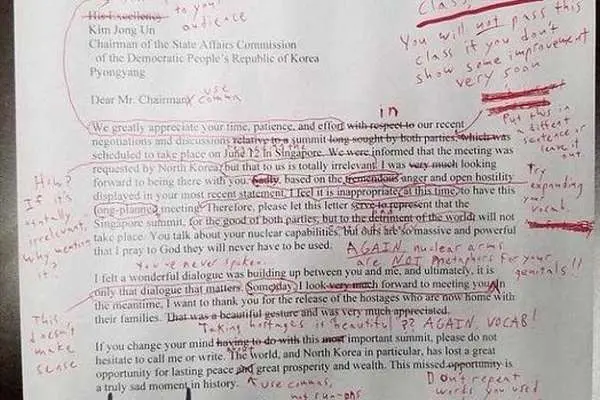 His Excellency
to your
audience
Kim Jong Un
Chairman of the State Affairs Commission
of the Democratic People's Republic of Korea
Pyongyang
Class,
You will not pass this
class if you don't
show some improvement
very soon
Dear Mr. Chairman
use
comma
in
We greatly appreciate your time, patience, and effort with respect to our recent
negotiations and discussions relative to a summit long sought by both parties, which was
scheduled to take place on June 12 in Singapore. We were informed that the meeting was
requested by North Korea, but that to us is totally irrelevant. I was very much looking
forward to being there with you. Sadly, based on the tremendous anger and open hostility
displayed in your most recent statement, I feel it is inappropriate, at this time, to have this
long-planned meeting. Therefore, please let this letter serve to represent that the
Singapore summit, for the good of both parties, but to the detriment of the world, will not
take place. You talk about your nuclear capabilities, but ours are so massive and powerful
that I pray to God they will never have to be used.
Put this in
a different
sentence or
leave it
out
Try
expanding
your
vocab.
How?
If it's
totally
irrelevant,
why mention
it?
AGAIN, nuclear arms
are NOT metaphors for your
genitals!!
You've never spoken.
I felt a wonderful dialogue was building up between you and me, and ultimately, it is
only that dialogue that matters. Someday, I look very much forward to meeting you. In
the meantime, I want to thank you for the release of the hostages who are now home with
their families. That was a beautiful gesture and was very much appreciated.
Taking hostages is beautiful?? AGAIN, VOCAB!
This
doesn't
make
sense
If you change your mind having to do with this most important summit, please do not
hesitate to call me or write. The world, and North Korea in particular, has lost a great
opportunity for lasting peace and great prosperity and wealth. This missed opportunity is
a truly sad moment in history.
use commas,
Don't repeat
words you used